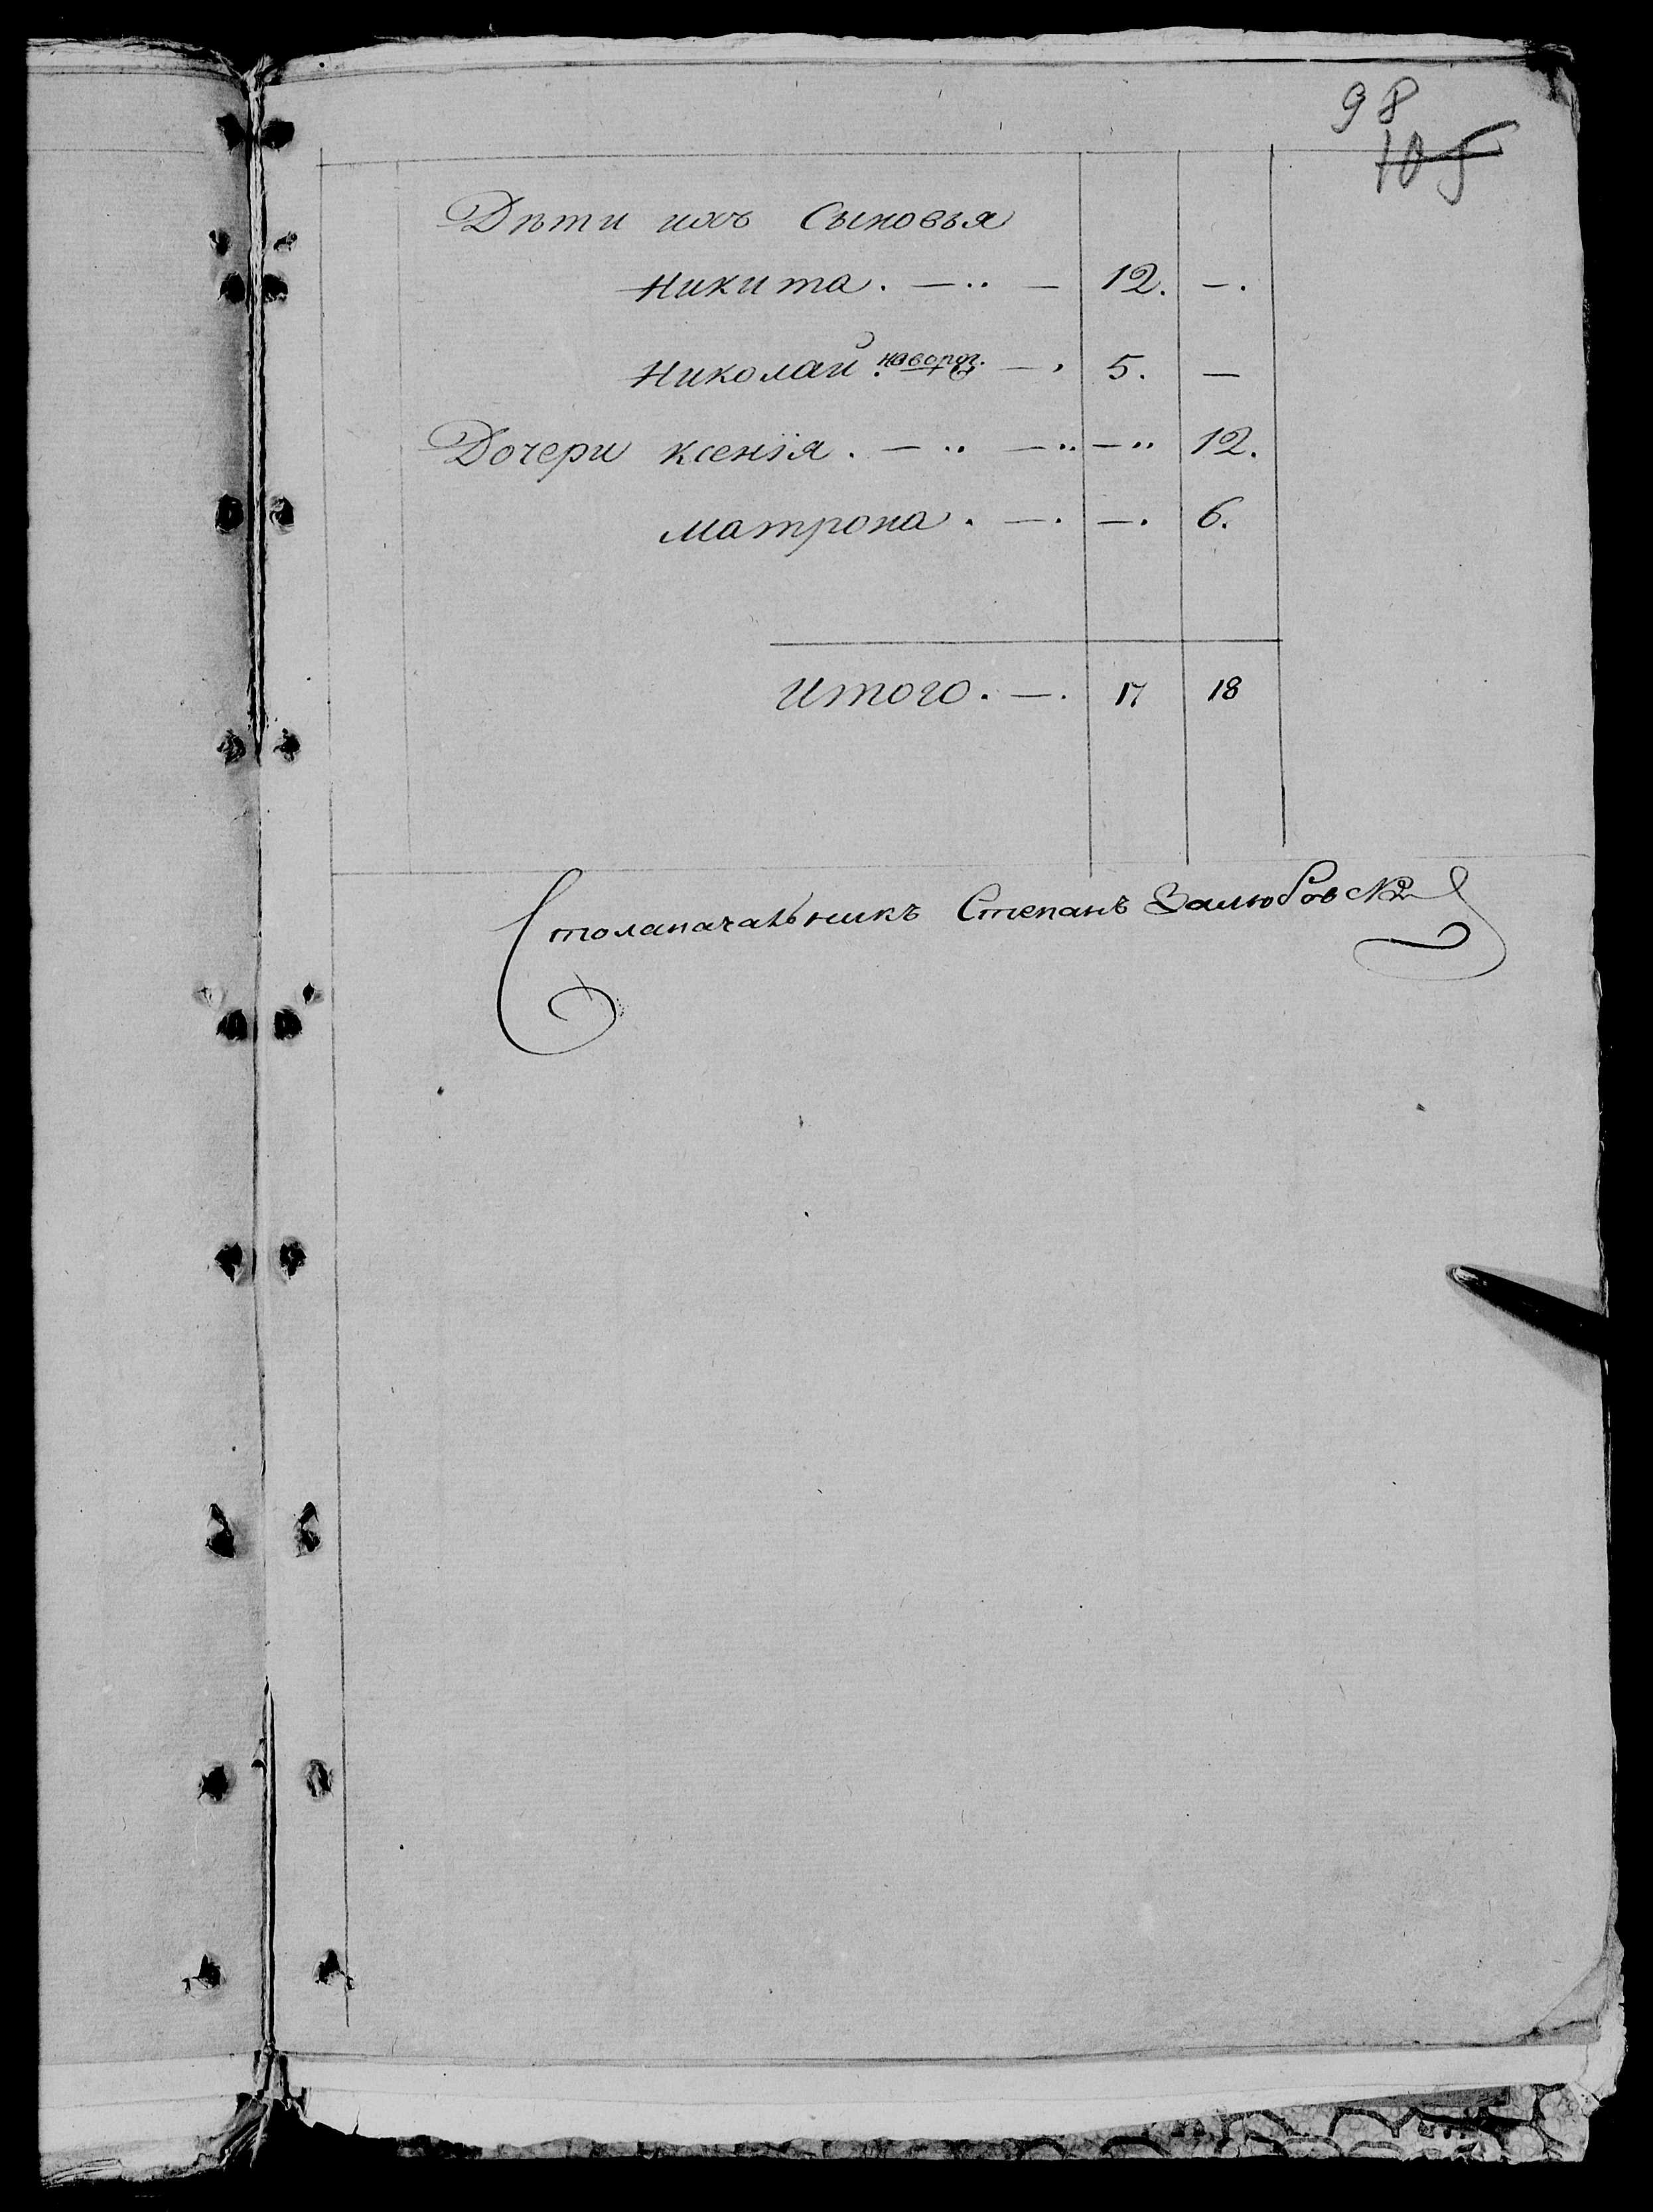 98
105
Дѣти ихъ Сыновья
Никита . — .. — 12. — .
Николай новорож. — . 5. —
Дочери Ксенія . — .. — .. — .. 12.
Матрона . — . — . 6.
Итого . — . 17 18
Столаначальникъ Степанъ Залюбовскій